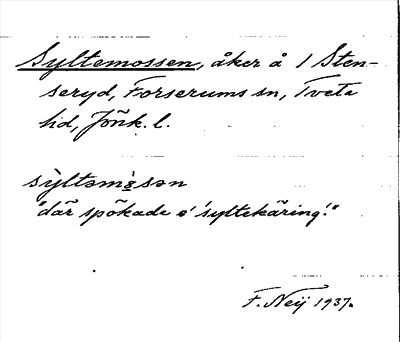 Syltemossen, åker å 1 Sten-
seryd, Forserums sn, Tveta
hd, Jönk. l.
"där spökade e' 'syltekäring'."
F. Neij 1937.